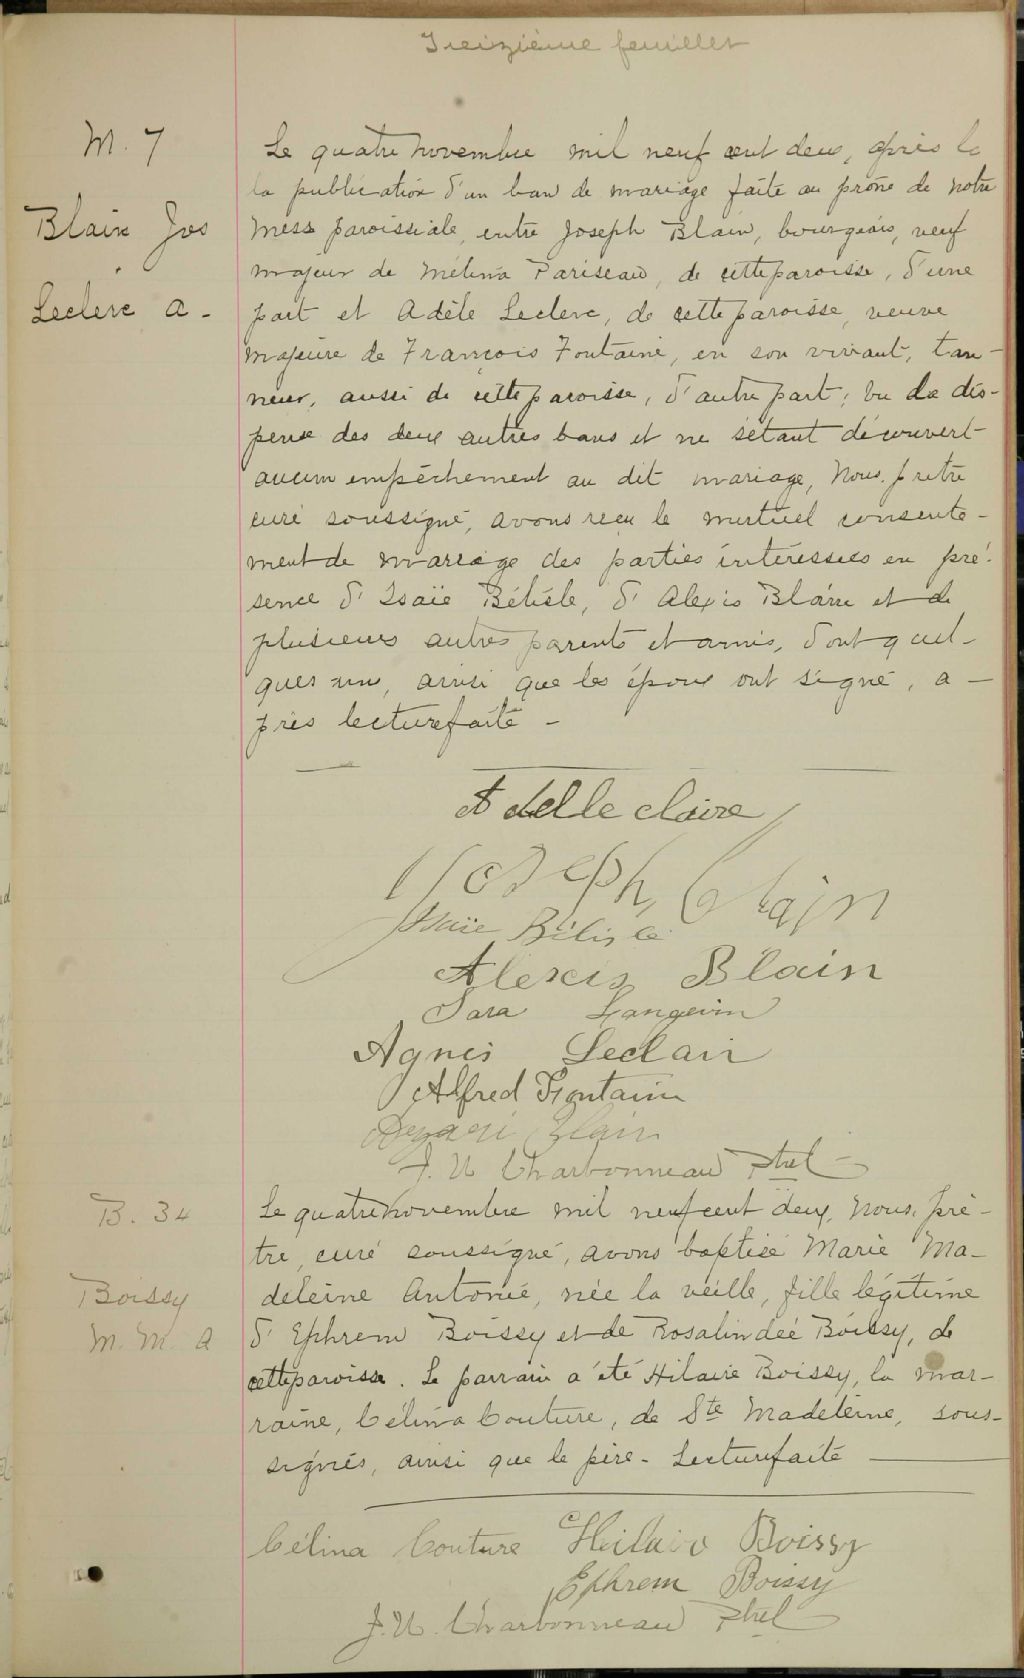 Treizième feuillet
M. 7
Blain Jos
Leclerc A.
Le quatre novembre mil neuf cent deux, après la
la publication d'un ban de mariage faite au prône de notre
mess paroissiale, entre Joseph Blain, bourgeois, veuf
majeur de Mélina Pariseau, de cette paroisse, d'une
part et Adèle Leclerc, de cette paroisse, veuve
majeure de François Fontaine, en son vivant, tan-
neur, aussi de cette paroisse, d'autre part; vu la dis-
pense des deux autres bans et ne s'étant découvert
aucun empêchement au dit mariage, Nous, prêtre
curé soussigné, avons reçu le mutuel consente-
ment de mariage des parties intéressées en pré-
sence d'Isaïe Bélisle, d'Alexis Blain et de
plusieurs autres parents et amis, dont quel-
ques uns, ainsi que les époux ont signé, a-
près lecture faite -
Adelle claire
Joseph, Blain
Isaïe Bélisle
Alexis Blain
Sara Langevin
Agnes Leclair
Alfred Fontaine
Blain
J. U. Charbonneau Ptre
B. 34
Boissy
M. M. A
Le quatre novembre mil neuf cent deux, nous, prê-
tre, curé soussigné, avons baptisé Marie Ma-
deleine Antonie, née la veille, fille légitime
d'Ephrem Boissy et de Rosalindée Boissy, de
cette paroisse. Le parrain a été Hilaire Boissy, la mar-
raine, Célina Couture, de Ste Madeleine, sous-
signés, ainsi que le père - Lecture faite
Célina Couture Hilaire Boissy
Ephrem Boissy
J. U. Charbonneau Ptre